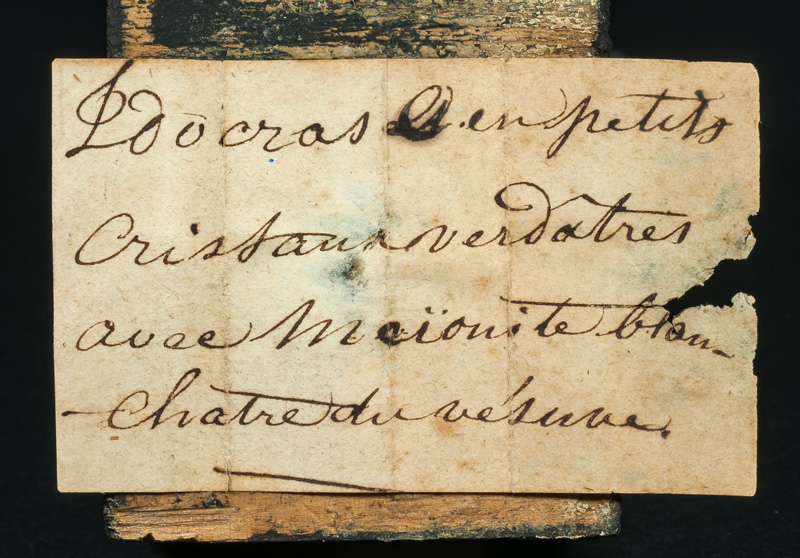 Idocras en petits
Cristaux verdâtres
avec Meïonite blan-
-chatre du vésuve.